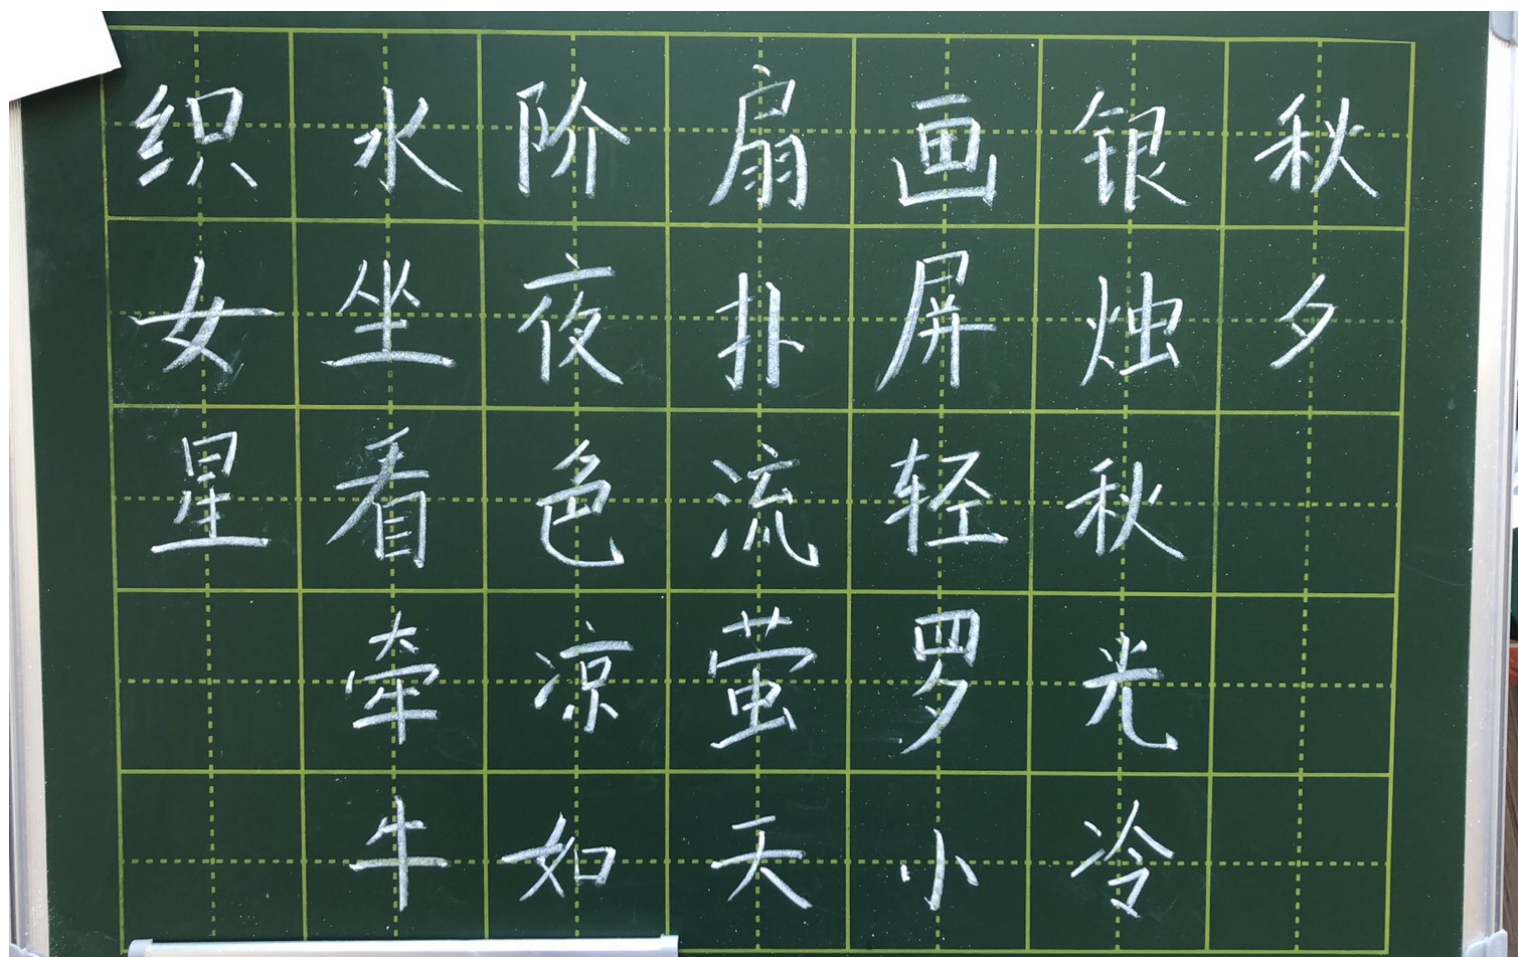 秋夕
银烛秋光冷
画屏轻罗小
扇扑流萤天
阶夜色凉如
水坐看牵牛
织女星